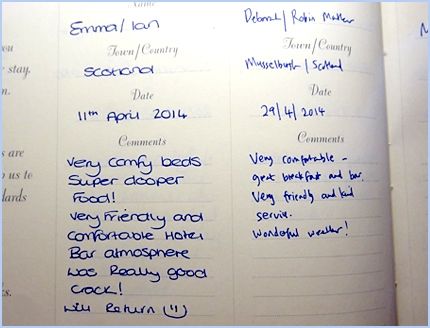 Name
Emma/Ian
Town/Country
Scotland
Date
11th April 2014
Comments
Very comfy beds
Super dooper
Food!
Very friendly and
comfortable Hotel
Bar atmosphere
was Really good
Crack!
Will Return
Deborah / Robin
Town/Country
Musselburgh / Scotland
Date
29/4/2014
Comments
Very comfortable -
great breakfast and bar.
Very friendly and kind
service.
Wonderful weather!
you
r stay.
n.
s are
o us to
dards
s.